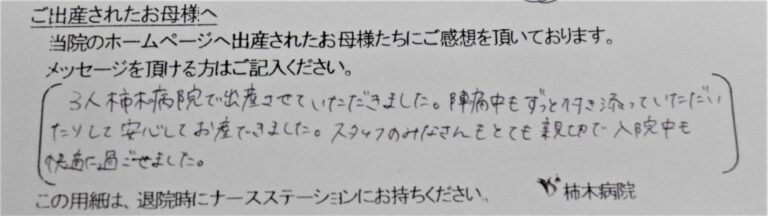 ご出産されたお母様へ
当院のホームページへ出産されたお母様たちにご感想を頂いております。
メッセージを頂ける方はご記入ください。
3人柿木病院で出産させていただきました。陣痛中もずっと付き添っていただい
たりして安心してお産できました。スタッフのみなさんもとても親切で入院中も
快適に過ごせました。
この用紙は、退院時にナースステーションにお持ちください。 柿木病院